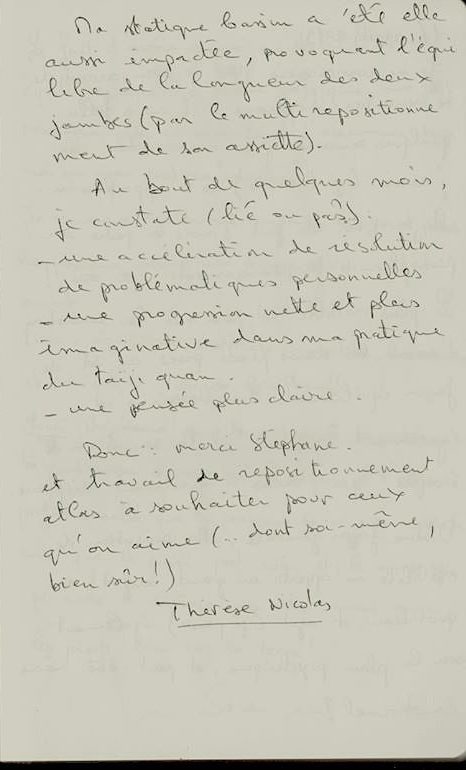 Ma statique bassin a été elle
aussi impactée, provoquant l'équi
libre de la longueur des deux
jambes (par le multi repositionne
ment de son assiette).
Au bout de quelques mois,
je constate (lié ou pas?) :
- une accélération de résolution
de problématiques personnelles
- une progression nette et plus
imaginative dans ma pratique
du taiji quan.
- une pensée plus claire.
Donc : merci Stéphane.
et travail de repositionnement
atlas à souhaiter pour ceux
qu'on aime (... dont soi-même,
bien sûr!)
Thérèse Nicolas